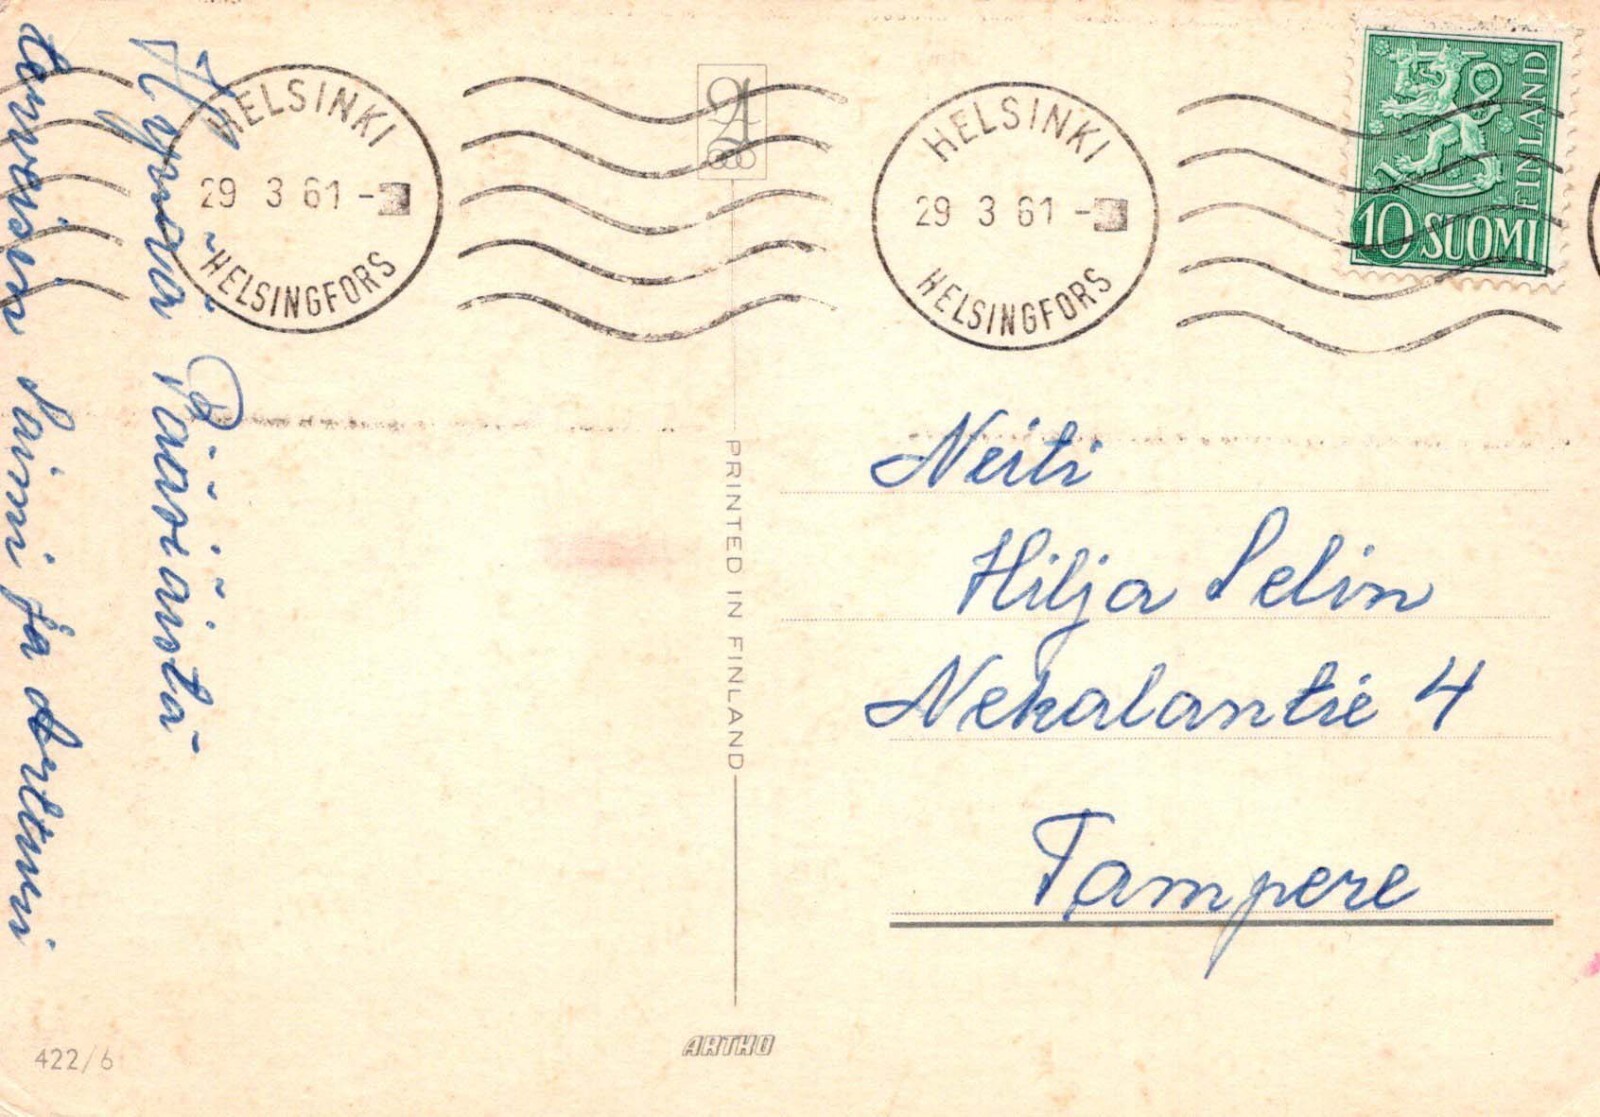 Hyvää Pääsiäistä
toivovat Saimi ja Arttumi
HELSINKI
29 3 61 -
HELSINGFORS
HELSINKI
29 3 61 -
HELSINGFORS
FINLAND
10 SUOMI
PRINTED IN FINLAND
Neiti
Hilja Selin
Nekalantie 4
Tampere
422/6
ARTKO